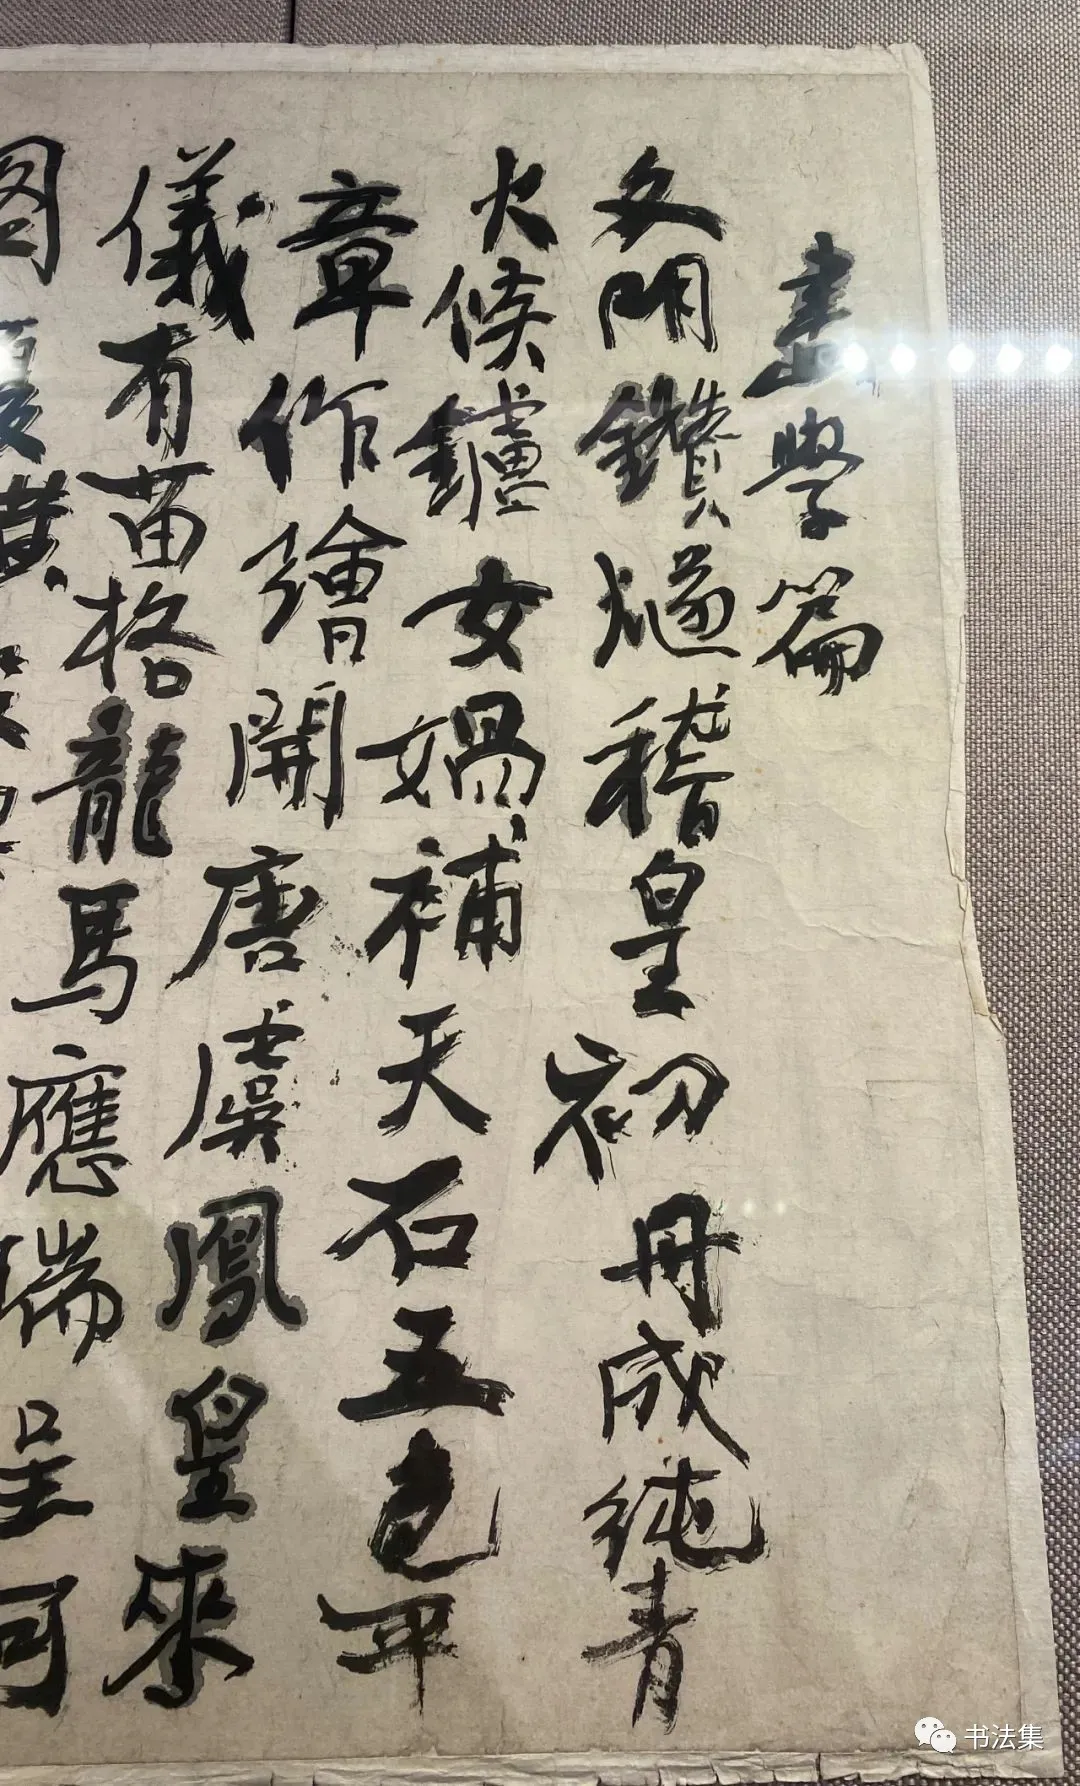 畫學篇
文明鑽燧稽皇初丹成純青
火候鑪女媧補天石五色平
章作繪開唐虞鳳皇來
儀有苗格龍馬應瑞呈河
圖
书法集